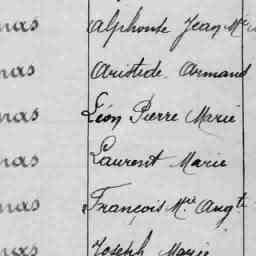 nas Alphonse Jean Mie
nas Aristide Armand
nas Léon Pierre Marie
nas Laurent Marie
nas François Mie Augte
nas Joseph Marie